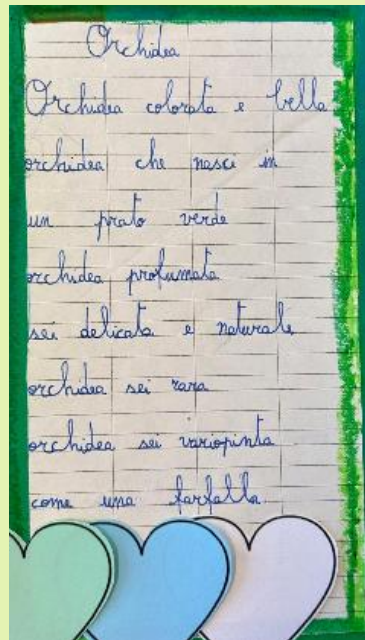 Orchidea
Orchidea colorata e bella
orchidea che nasci in
un prato verde
orchidea profumata
sei delicata e naturale
orchidea sei rara
orchidea sei variopinta
come una farfalla.